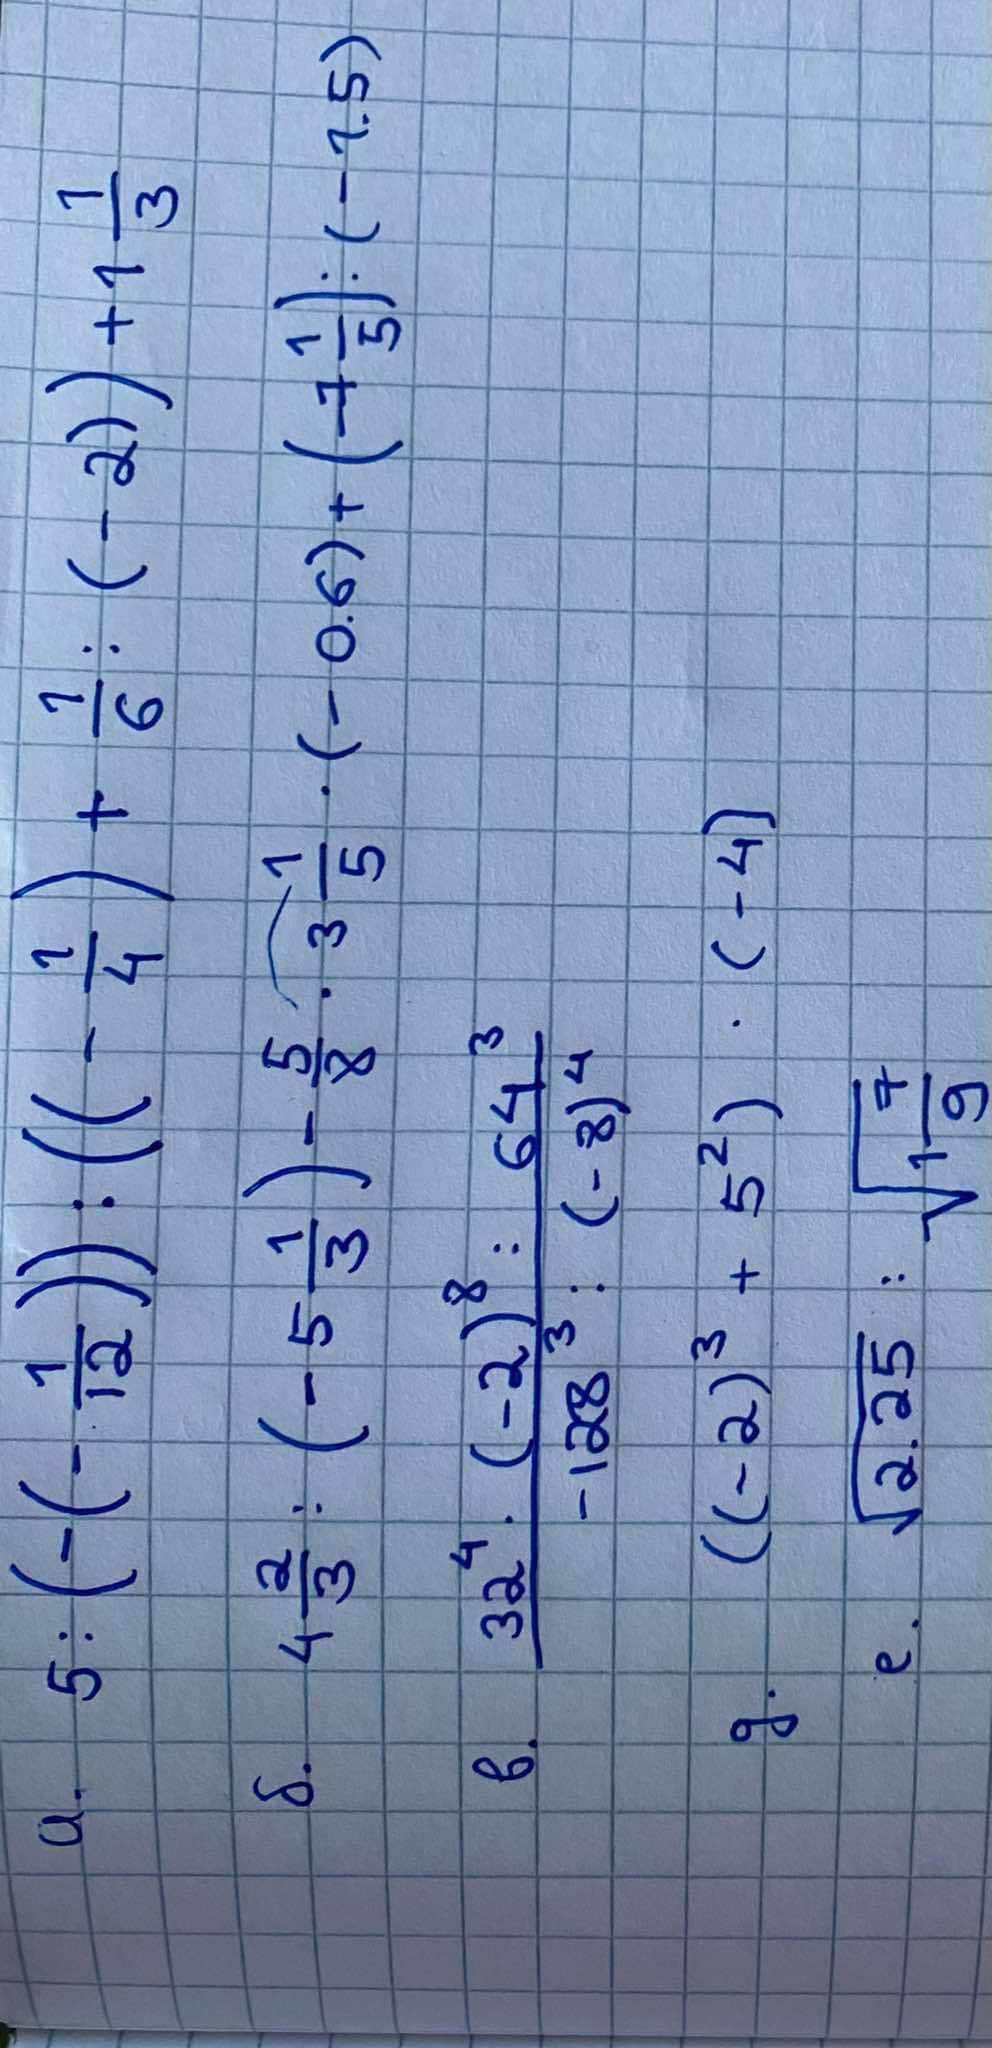 а. 5 : (-(-1/12)) : ((-1/4) + 1/6 : (-2)) + 1 1/3
б. 4 2/3 : (-5 1/3) - 5/8 · 3 1/5 · (-0.6) + (-1 1/5) : (-1.5)
в. 32⁴ · (-2)⁸ : 64³
-128³ : (-8)⁴
g. ((-2)³ + 5²) · (-4)
е. √2.25 : √1 7/9